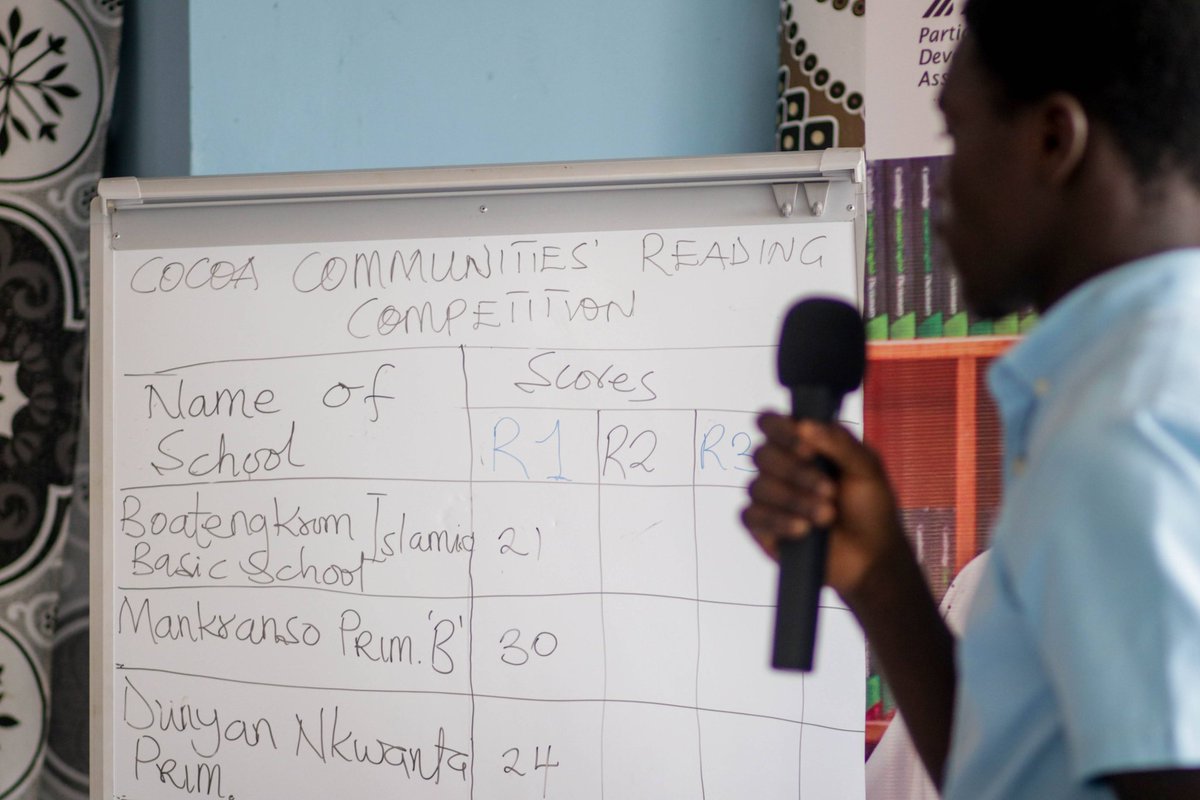 COCOA COMMUNITIES' READING
COMPETITION
Name of
School
Scores
R1 R2 R3
Boatengkrom Islamic
Basic School
21
Mankranso Prim. 'B'
30
Dunyan Nkwanta
Prim.
24